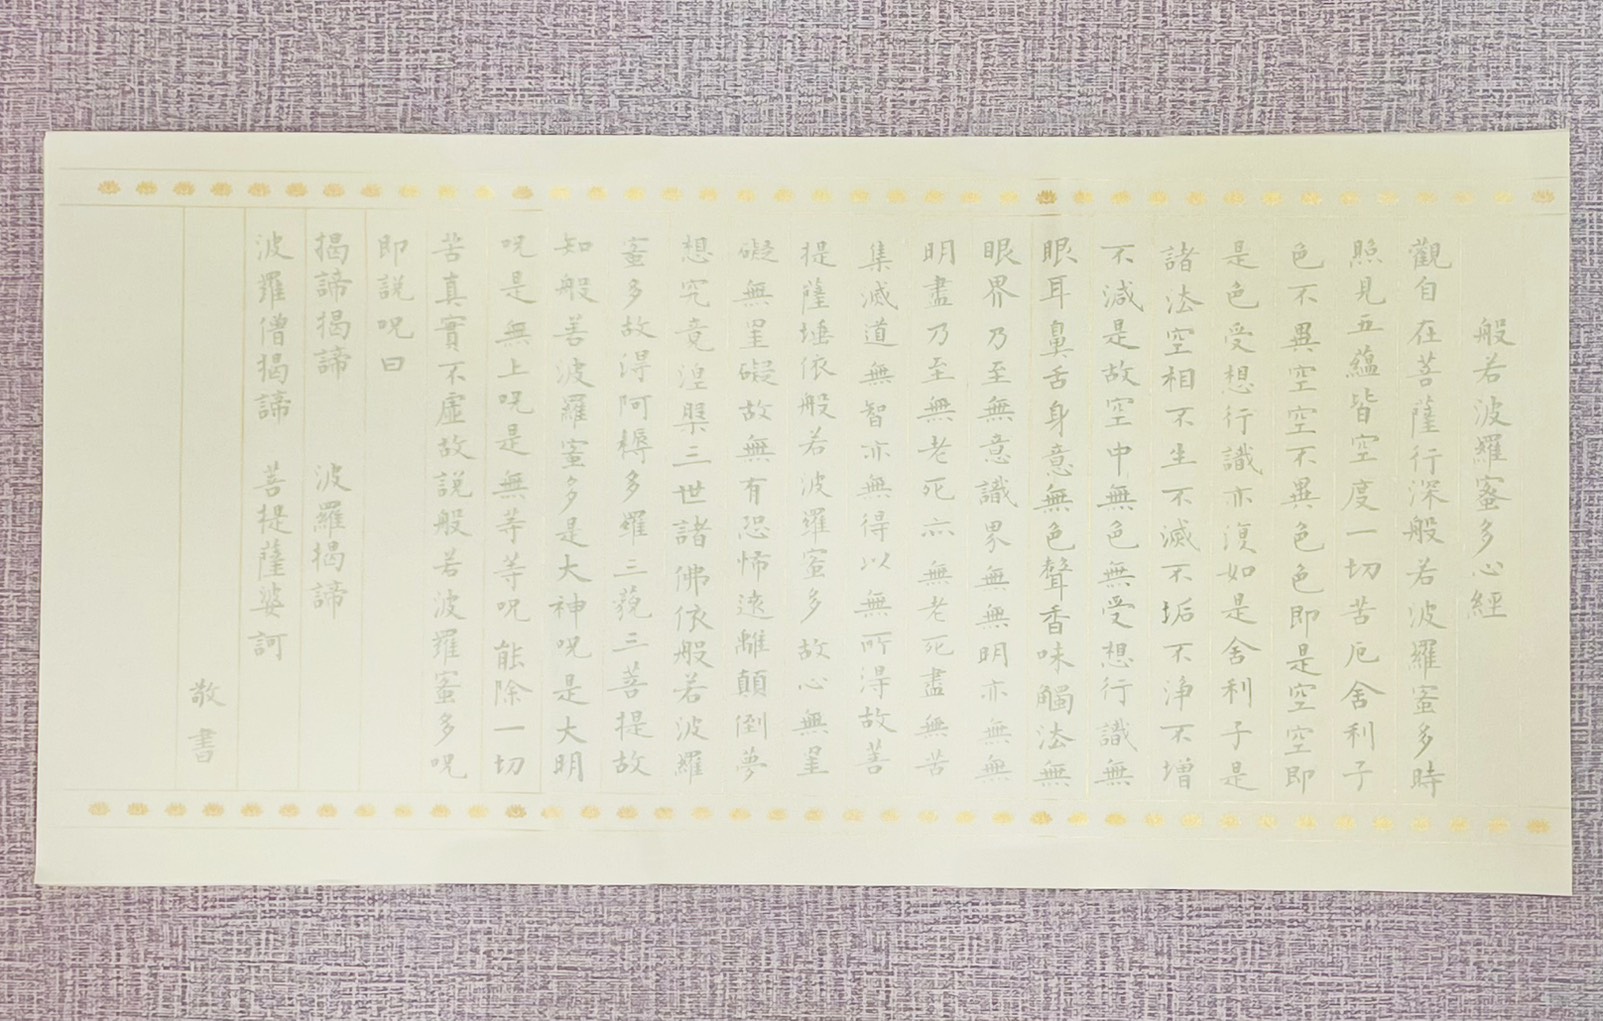 般若波羅蜜多心經
觀自在菩薩行深般若波羅蜜多時
照見五蘊皆空度一切苦厄舍利子
色不異空空不異色色即是空空即
是色受想行識亦復如是舍利子是
諸法空相不生不滅不垢不淨不增
不減是故空中無色無受想行識無
眼耳鼻舌身意無色聲香味觸法無
眼界乃至無意識界無無明亦無無
明盡乃至無老死亦無老死盡無苦
集滅道無智亦無得以無所得故菩
提薩埵依般若波羅蜜多故心無罣
礙無罣礙故無有恐怖遠離顛倒夢
想究竟涅槃三世諸佛依般若波羅
蜜多故得阿耨多羅三藐三菩提故
知般若波羅蜜多是大神呪是大明
呪是無上呪是無等等呪能除一切
苦真實不虛故說般若波羅蜜多呪
即說呪曰
揭諦揭諦 波羅揭諦
波羅僧揭諦 菩提薩婆訶
敬書